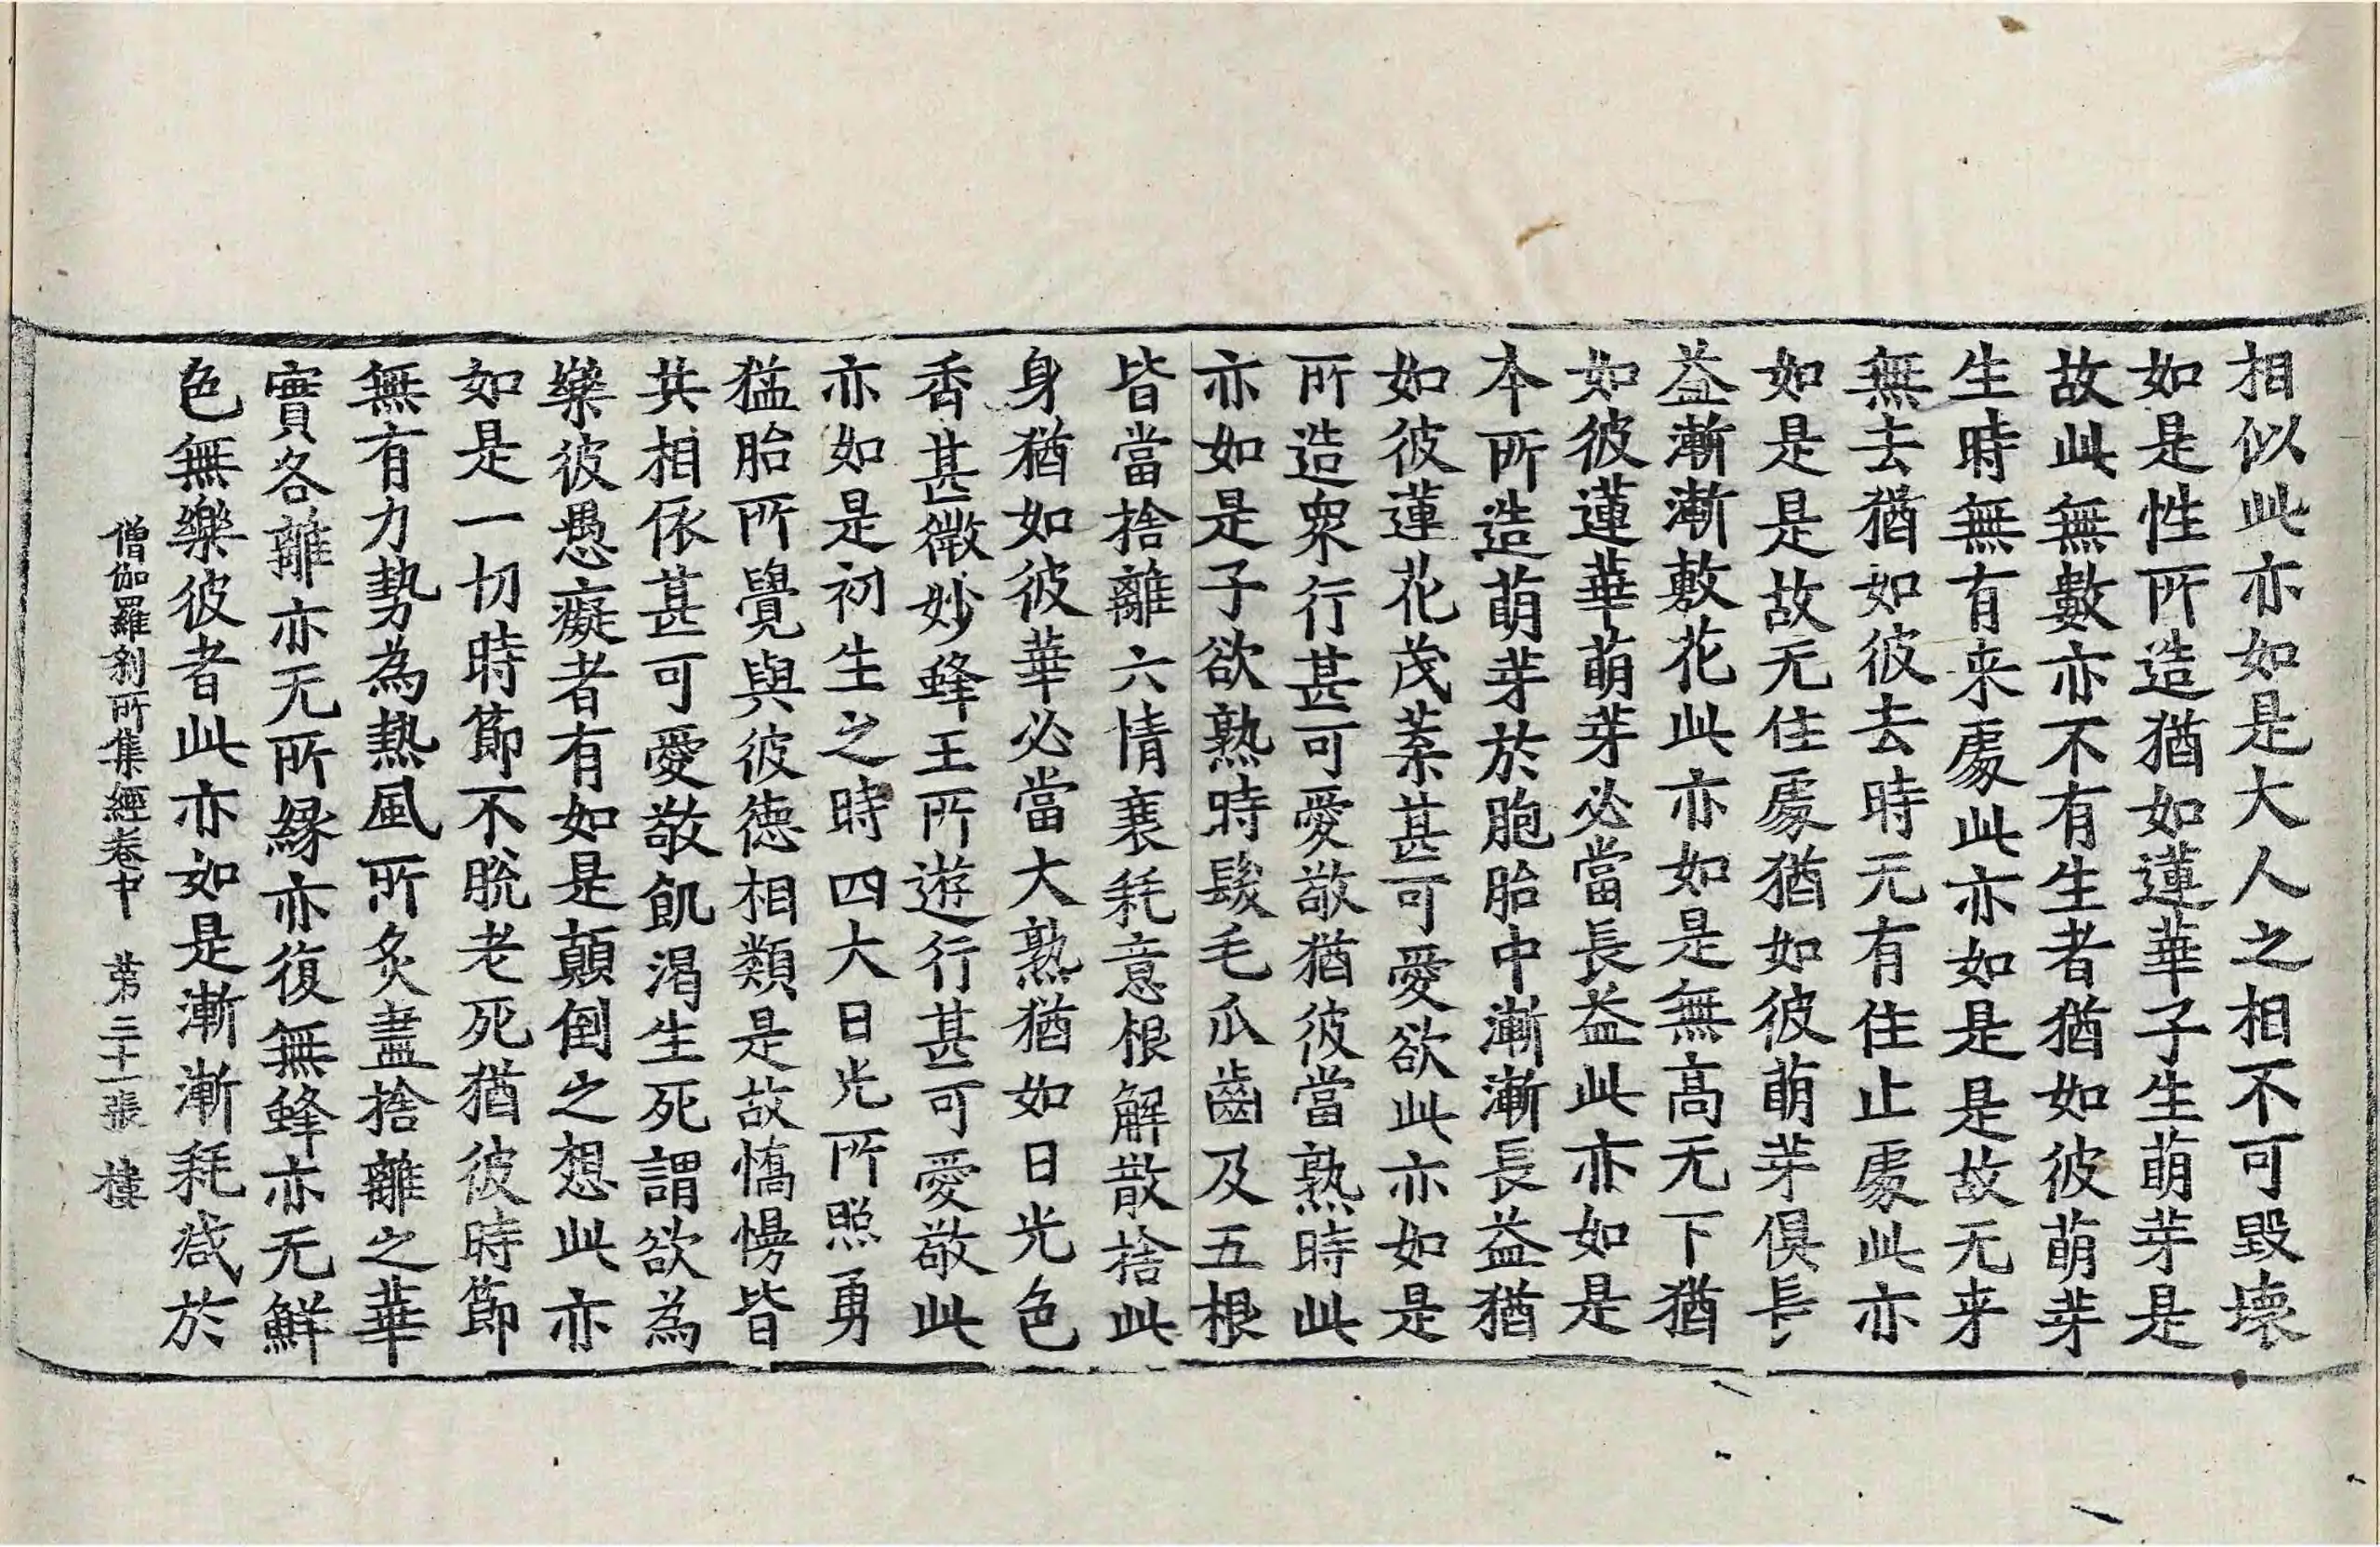 相似此亦如是大人之相不可毀壞
如是性所造猶如蓮華子生萌芽是
故此無數亦不有生者猶如彼萌芽
生時無有来處此亦如是是故无来
無去猶如彼去時无有住止處此亦
如是是故无住處猶如彼萌芽俱長
益漸漸敷花此亦如是無高无下猶
如彼蓮華萌芽必當長益此亦如是
本所造萌芽於胞胎中漸漸長益猶
如彼蓮花茂蓁甚可愛欲此亦如是
所造眾行甚可愛敬猶彼當熟時此
亦如是子欲熟時髮毛爪齒及五根
皆當捨離六情衰耗意根解散捨此
身猶如彼華必當大熟猶如日光色
香甚微妙蜂王所遊行甚可愛敬此
亦如是初生之時四大日光所照勇
猛胎所覺與彼德相類是故憍慢皆
共相依甚可愛敬飢渴生死謂欲為
樂彼愚癡者有如是顛倒之想此亦
如是一切時節不脫老死猶彼時節
無有力勢為熱風所炙盡捨離之華
實各離亦无所緣亦復無蜂亦无鮮
色無樂彼者此亦如是漸漸耗減於
僧伽羅剎所集經卷中 第三十一張 樓